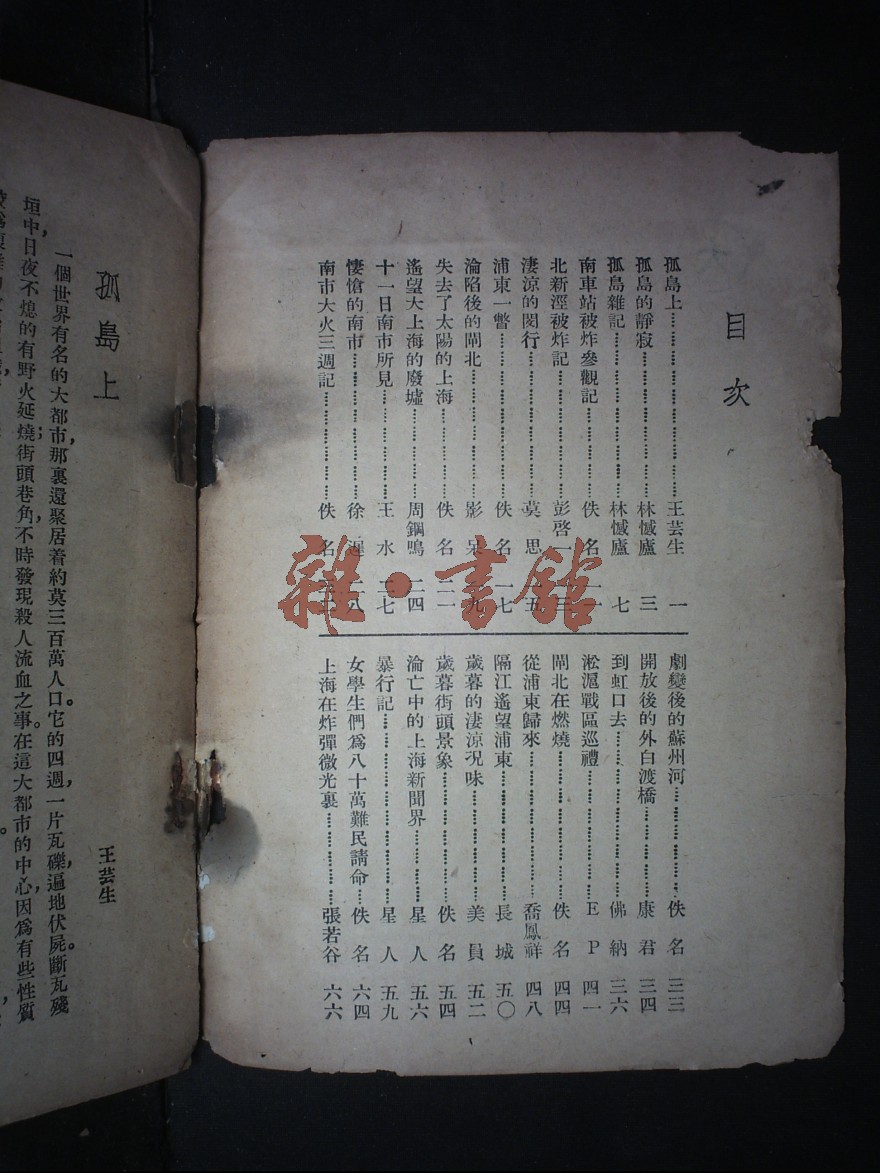 目次
孤島上……王芸生 一
孤島的靜寂……林憾廬 三
孤島雜記……林憾廬 七
南車站被炸參觀記……佚名 一一
北新涇被炸記……彭啓一
淒涼的閔行……莫思 一五
浦東一瞥……佚名 一七
淪陷後的閘北……影呆
失去了太陽的上海……佚名 二一
遙望大上海的廢墟……周鋼鳴 二四
十一日南市所見……王水 二七
悽愴的南市……徐遲 二八
南市大火三週記……佚名
劇變後的蘇州河……佚名 三三
開放後的外白渡橋……康君 三四
到虹口去……佛納 三六
淞滬戰區巡禮……EP 四一
閘北在燃燒……佚名 四四
從浦東歸來……喬鳳祥 四八
隔江遙望浦東……長城 五〇
歲暮的淒涼況味……美員 五二
歲暮街頭景象……佚名 五四
淪亡中的上海新聞界……星人 五六
暴行記……星人 五九
女學生們爲八十萬難民請命……佚名 六四
上海在炸彈微光裏……張若谷 六六
孤島上
王芸生
一個世界有名的大都市,那裏還聚居着約莫三百萬人口。它的四週,一片瓦礫,遍地伏屍。斷瓦殘
垣中,日夜不熄的有野火延燒;街頭巷角,不時發現殺人流血之事。在這大都市的中心,因爲有些性質
雜·書館